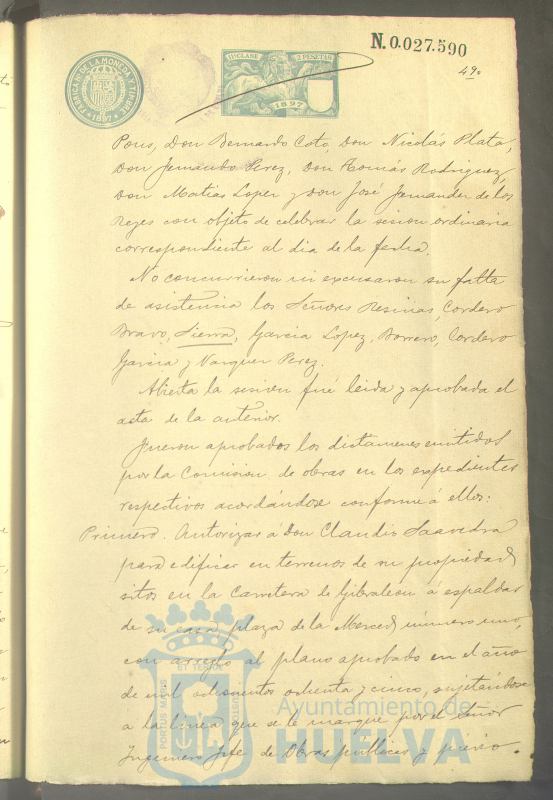 N.0.027.590
FABRICA N. DE LA MONEDA Y TIMBRE
1897
11ª CLASE 2 PESETAS
1897
49.
Pons, Don Bernardo Coto, Don Nicolás Plata,
Don Fernando Perez, Don Tomás Rodriguez,
Don Matias Lopez y Don José Fernandez de los
Reyes con objeto de celebrar la sesion ordinaria
correspondiente al dia de la fecha.
No concurrieron ni excusaron su falta
de asistencia los Señores Resinas, Cordero
Bravo, Sierra, Garcia Lopez, Borrero, Cordero
Garcia y Vazquez Perez.
Abierta la sesion fué leida y aprobada el
acta de la anterior.
Fueron aprobados los dictamenes emitidos
por la Comision de obras en los expedientes
respectivos acordándose conforme á ellos:
Primero. Autorizar á Don Claudio Saavedra
para edificar en terrenos de su propiedad
sitos en la Carretera de Gibraleon á espaldas
de su casa plaza de la Merced número uno,
con arreglo al plano aprobado en el año
de mil ochocientos ochenta y cinco, sujetándose
a la linea que se le marque por el Señor
Ingeniero Jefe de Obras públicas y previo
PORTUS MARIS ET TERRAE CUSTODIA
Ayuntamiento de
HUELVA